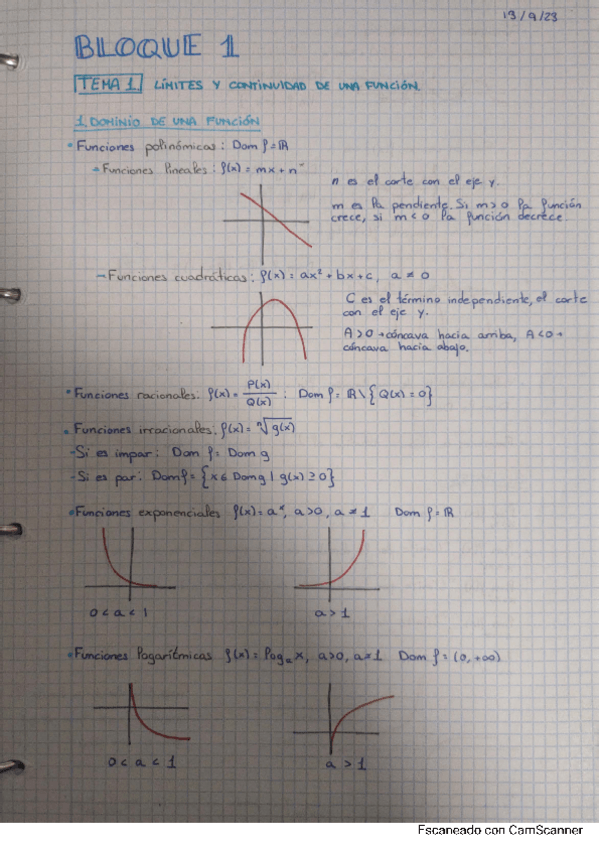 13/9/23
BLOQUE 1
TEMA 1. LÍMITES Y CONTINUIDAD DE UNA FUNCIÓN.
1. DOMINIO DE UNA FUNCIÓN
• Funciones polinómicas: Dom f = ℝ
→ Funciones lineales: f(x) = mx + n
n es el corte con el eje y.
m es la pendiente. Si m > 0 la función
crece, si m < 0 la función decrece.
→ Funciones cuadráticas: f(x) = ax² + bx + c, a ≠ 0
C es el término independiente, el corte
con el eje y.
A > 0 → cóncava hacia arriba, A < 0 →
cóncava hacia abajo.
• Funciones racionales: f(x) = P(x)/Q(x) : Dom f = ℝ \ {Q(x) = 0}
• Funciones irracionales: f(x) = ⁿ√g(x)
- Si es impar: Dom f = Dom g
- Si es par: Dom f = {x ∈ Dom g | g(x) ≥ 0}
• Funciones exponenciales f(x) = aˣ, a > 0, a ≠ 1 Dom f = ℝ
0 < a < 1
a > 1
• Funciones logarítmicas f(x) = logₐ x, a > 0, a ≠ 1 Dom f = (0, +∞)
0 < a < 1
a > 1
Escaneado con CamScanner